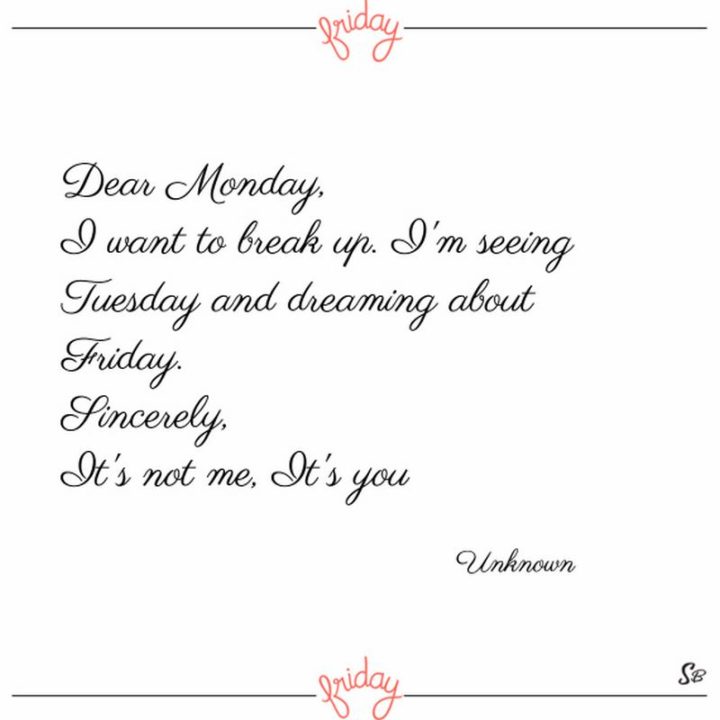 friday
Dear Monday,
I want to break up. I'm seeing
Tuesday and dreaming about
Friday.
Sincerely,
It's not me, It's you
Unknown
SB
friday